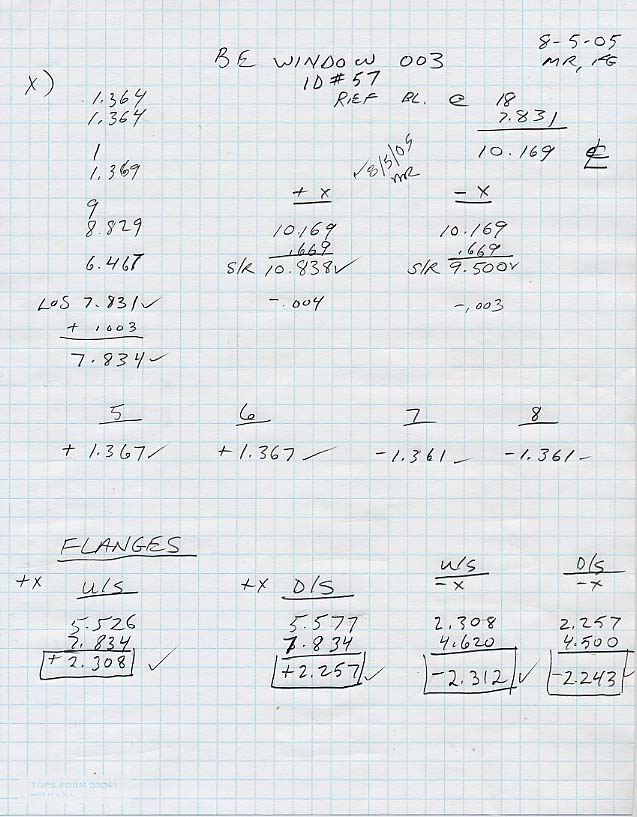 8-5-05
BE WINDOW 003
MR, FG
X)
ID #57
1.364
REF BL. @ 18
1.364
7.831
1
10.169 ℄
1.369
✓8/5/05
MR
+ X
- X
9
8.829
10.169
10.169
.669
.669
6.467
S/R 10.838✓
S/R 9.500✓
LOS 7.831✓
-.004
-.003
+ .003
7.834✓
5 6 7 8
+1.367✓ +1.367✓ -1.361✓ -1.361✓
FLANGES
+X U/S
+X D/S
U/S
-X
D/S
-X
5.526 5.577 2.308 2.257
7.834 7.834 4.620 4.500
+2.308 ✓ +2.257 ✓ -2.312 ✓ -2.243 ✓
TOPS FORM 35041